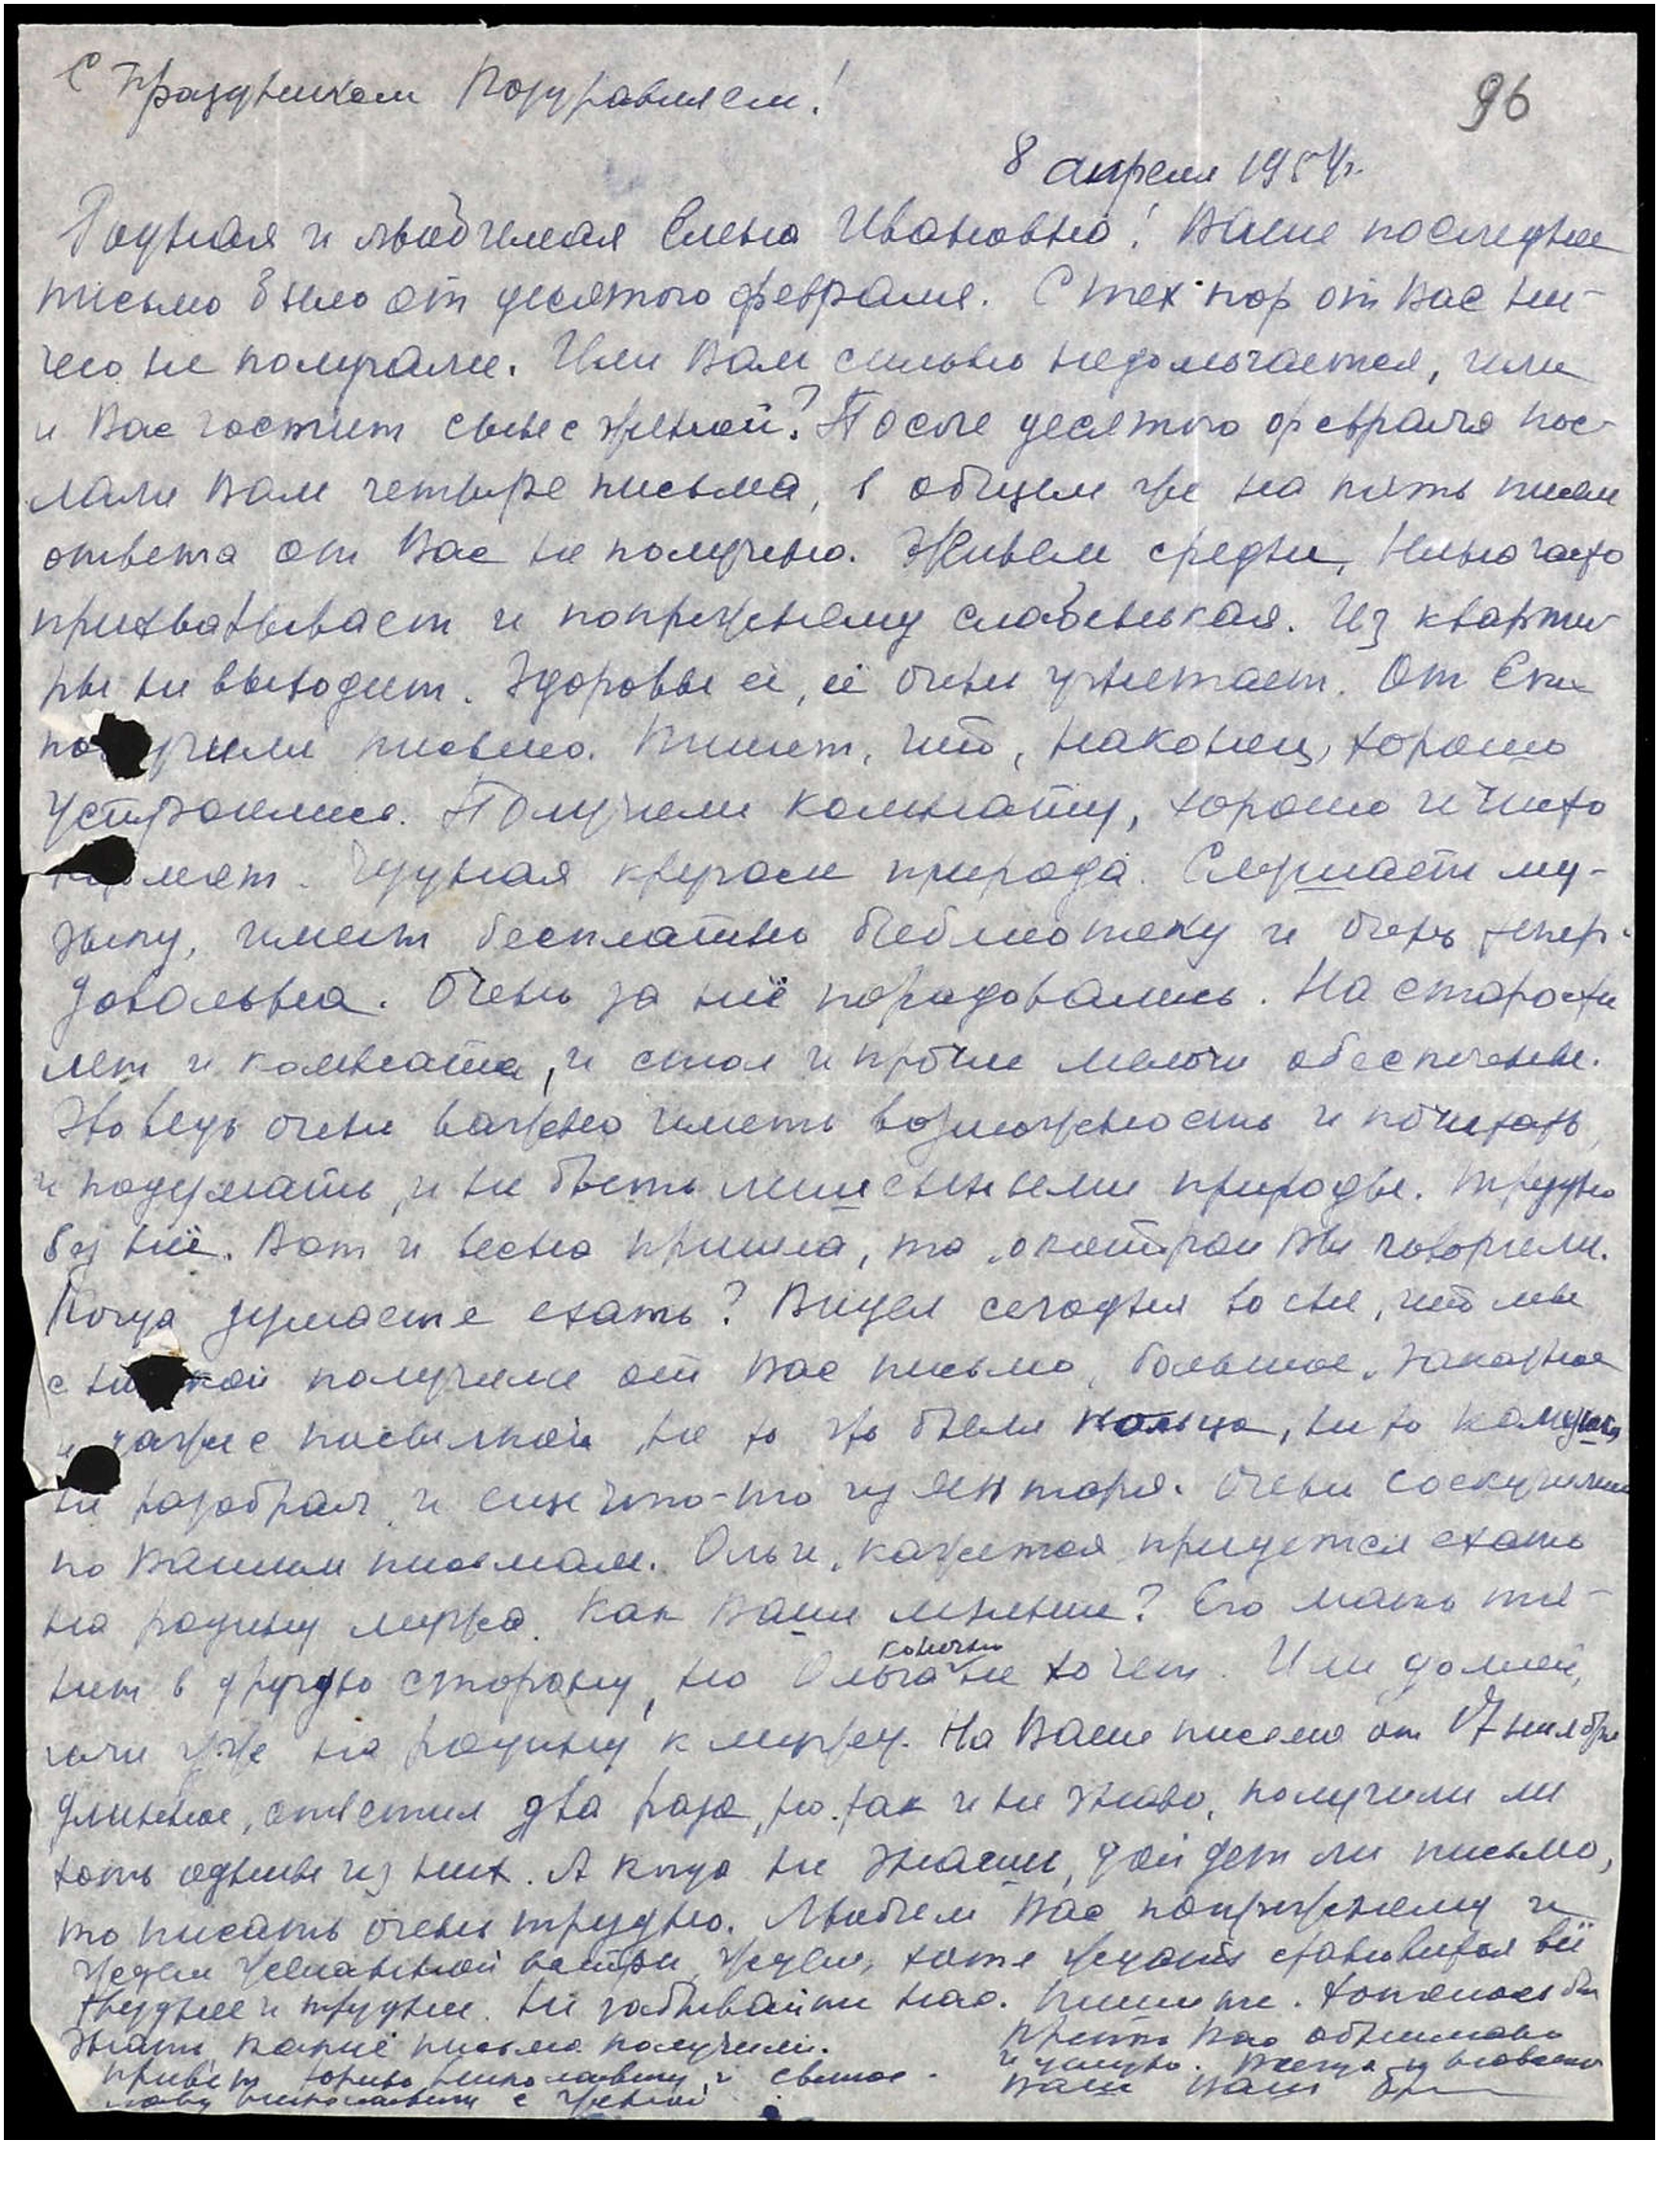 С праздником Поздравляем!
96
8 апреля 1954г.
Родная и любимая Елена Ивановна! Ваше последнее
письмо было от десятого февраля. С тех пор от Вас ни-
чего не получали. Или Вам сильно недомогается, или
и Вас гостит сын с женой? После десятого февраля пос-
лали Вам четыре письма, в общем же на пять писем
ответа от Вас не получено. Живем средне, Нина часто
прихватывает и попрежнему слабенькая. Из кварти-
ры не выходит. Здоровье её, её очень угнетает. От
получили письмо. Пишет, что, наконец, хорошо
устроились. Получили комнату, хорошо и чисто
кормят. Чудная кругом природа. Слушает му-
зыку, имеет бесплатно библиотеку и очень теперь
довольна. Очень за неё порадовались. На старости
лет и комната, и стол и прочие мелочи обеспечены.
Это ведь очень важно иметь возможность и почитать,
и подумать, и не быть лишенными природы. Трудно
без неё. Вот и весна пришла, та, о которой Вы говорили.
Когда думаете ехать? Видел сегодня во сне, что мы
с Ниночкой получили от Вас письмо, большое, заказное
и даже с посылкой, не то это были кольца, не то
не разобрал, и еще что-то из янтаря. Очень соскучились
по Вашим письмам. Ольге, кажется, придется ехать
на родину мужа. Как Ваше мнение? Его мать тя-
нет в другую сторону, но Ольга конечно не хочет. Или домой,
или уже на родину к мужу. На Ваше письмо от 17 ноября
длинное, ответил два раза, но так и не знаю, получили ли
хоть одно из них. А когда не знаешь, дойдет ли письмо,
то писать очень трудно. Любим Вас попрежнему и
ждем желанной встречи, ждем, хотя ждать становится всё
труднее и труднее. Не забывайте нас. Пишите. Хотелось бы
знать, какие письма получили. Крепко Вас обнимаю
Привет Николаевичу и и целую. Всегда
Николаевичу с женой Ваш Ваш